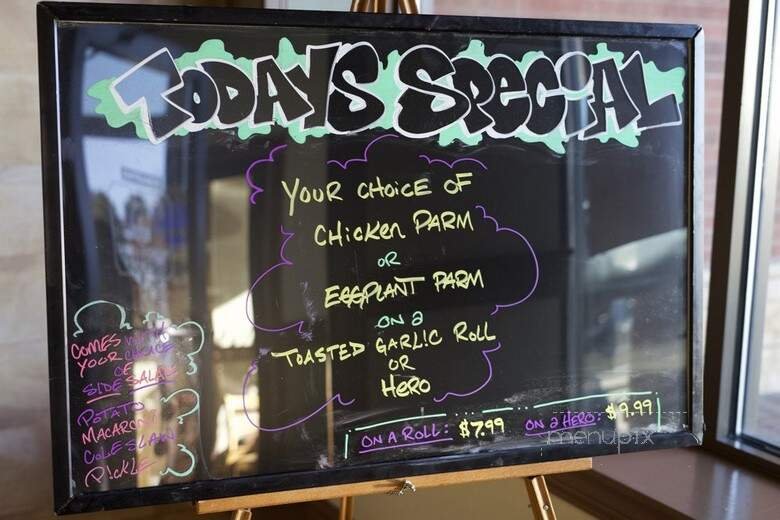 TODAYS SPECIAL
YOUR CHOICE OF
CHICKEN PARM
OR
EGGPLANT PARM
ON A
TOASTED GARLIC ROLL
OR
HERO
COMES WITH
YOUR CHOICE
OF
SIDE SALAD
POTATO
MACARONI
COLESLAW
PICKLE
ON A ROLL: $7.99 ON A HERO: $9.99
menupix